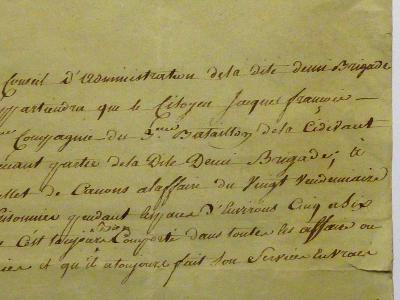 Conseil D'administration dela dite demi Brigade
appartiendra que le Citoyen Jacques françois
Compagnie du 3.me Bataillon dela Cidevant
partie dela Dite Demi Brigade, à
de Canons alaffaire du Vingt Vendemiaire
pendant lespace D'Environs Cinq a Six
C'est toujours Comporté dans toutes les affaire ou
et qu'il atoujours fait Son Service En vrai